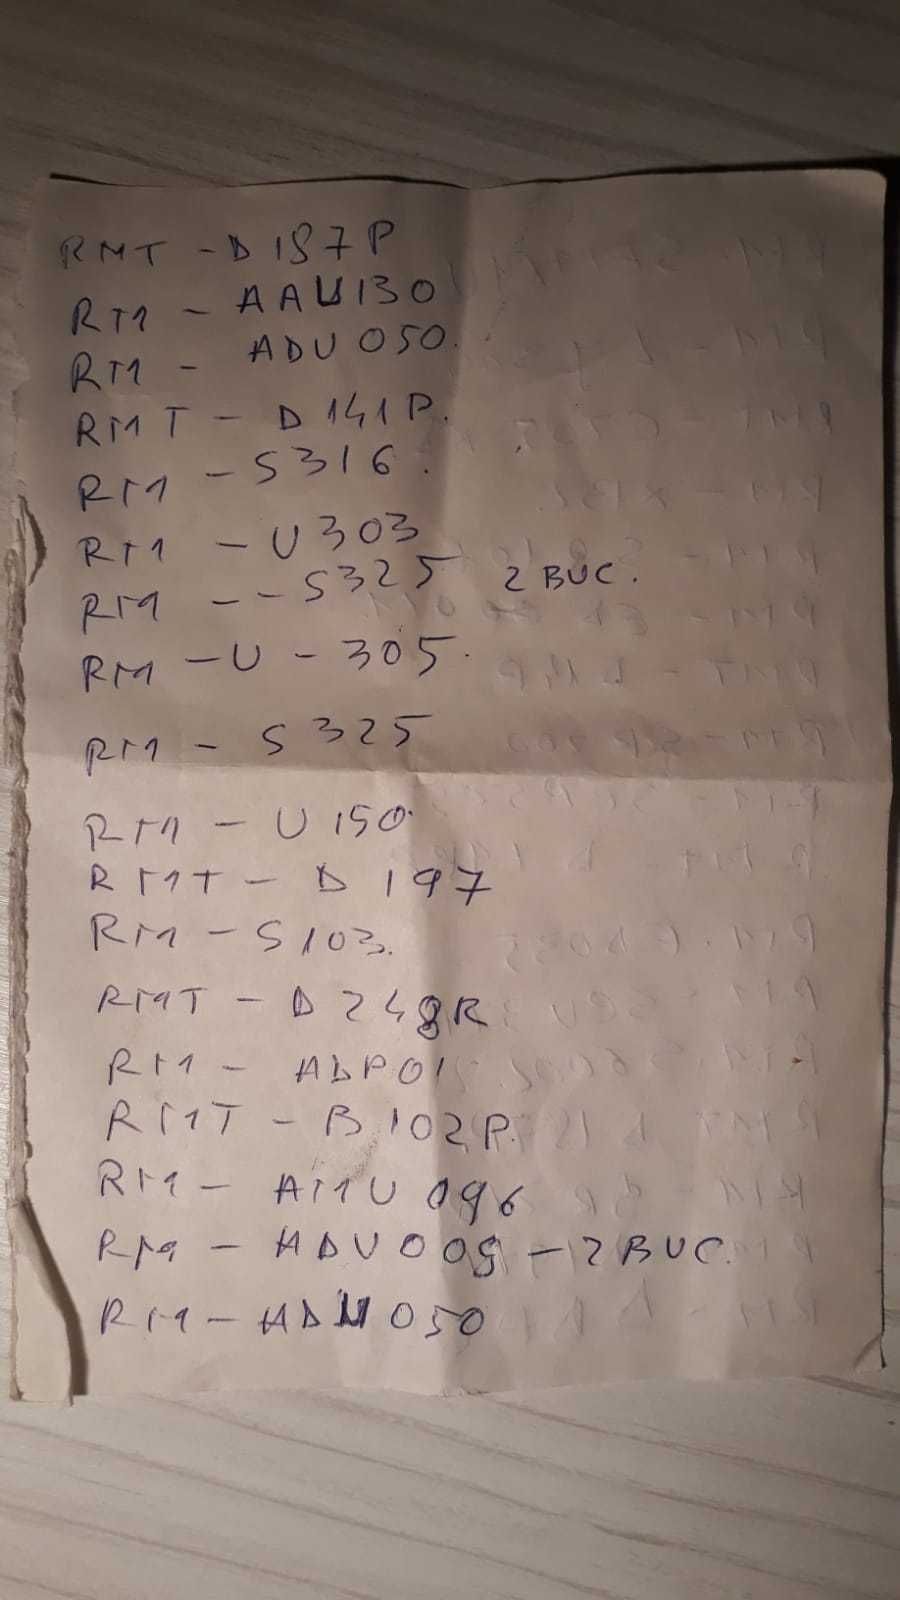 RMT - D187P
RM - AAU130
RM - ADU050.
RMT - D141P.
RM - S316.
RM - U303
RM -- S325 2 BUC.
RM - U - 305.
RM - S325
RM - U150.
RMT - D197
RM - S103.
RMT - D248R
RM - ADP01
RMT - B102P.
RM - AMU096
RM - ADU009 - 2 BUC.
RM - ADU050